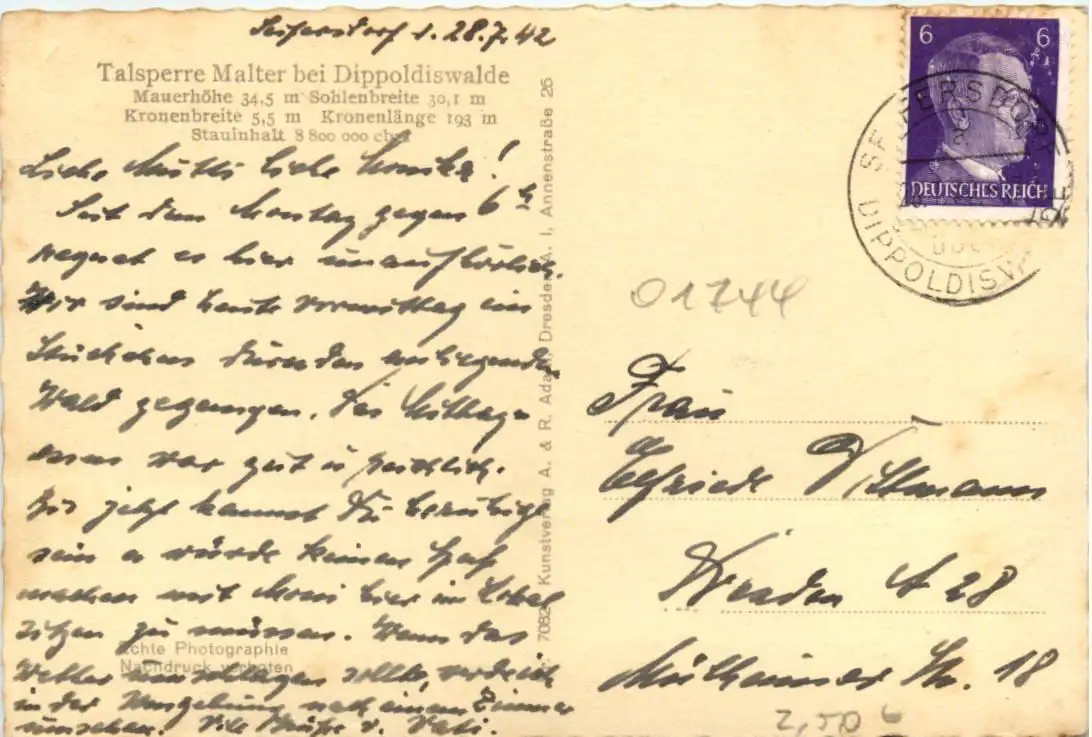 Seifersdorf d. 28.7.42
Talsperre Malter bei Dippoldiswalde
Mauerhöhe 34,5 m Sohlenbreite 30,1 m
Kronenbreite 5,5 m Kronenlänge 193 m
Stauinhalt 8 800 000 cbm
Liebe Mutti liebe Monika!
Seit dem Montag gegen 6 h
regnet es hier unaufhörlich.
Wir sind heute vormittag ein
Stückchen durch den umliegenden
Wald gegangen. Das Mittag
essen war gut u reichlich.
Bis jetzt kannst Du beruhigt
sein es würde keinen Spaß
machen mit Moni hier im Lokal
sitzen zu müssen. Wenn das
Wetter umschlagen sollte, werde ich
in der Umgebung nach einem Zimmer
umsehen. Viele Grüße v. Vati.
Echte Photographie
Nachdruck verboten
7082 Kunstverlag A. & R. Adam, Dresden-A. 1, Annenstraße 26
6 6
DEUTSCHES REICH
SEIFERSDORF
DIPPOLDISW
01744
Frau
Elfriede Dittmann
Dresden A 28
Mülheimer Str. 18
2,50 6